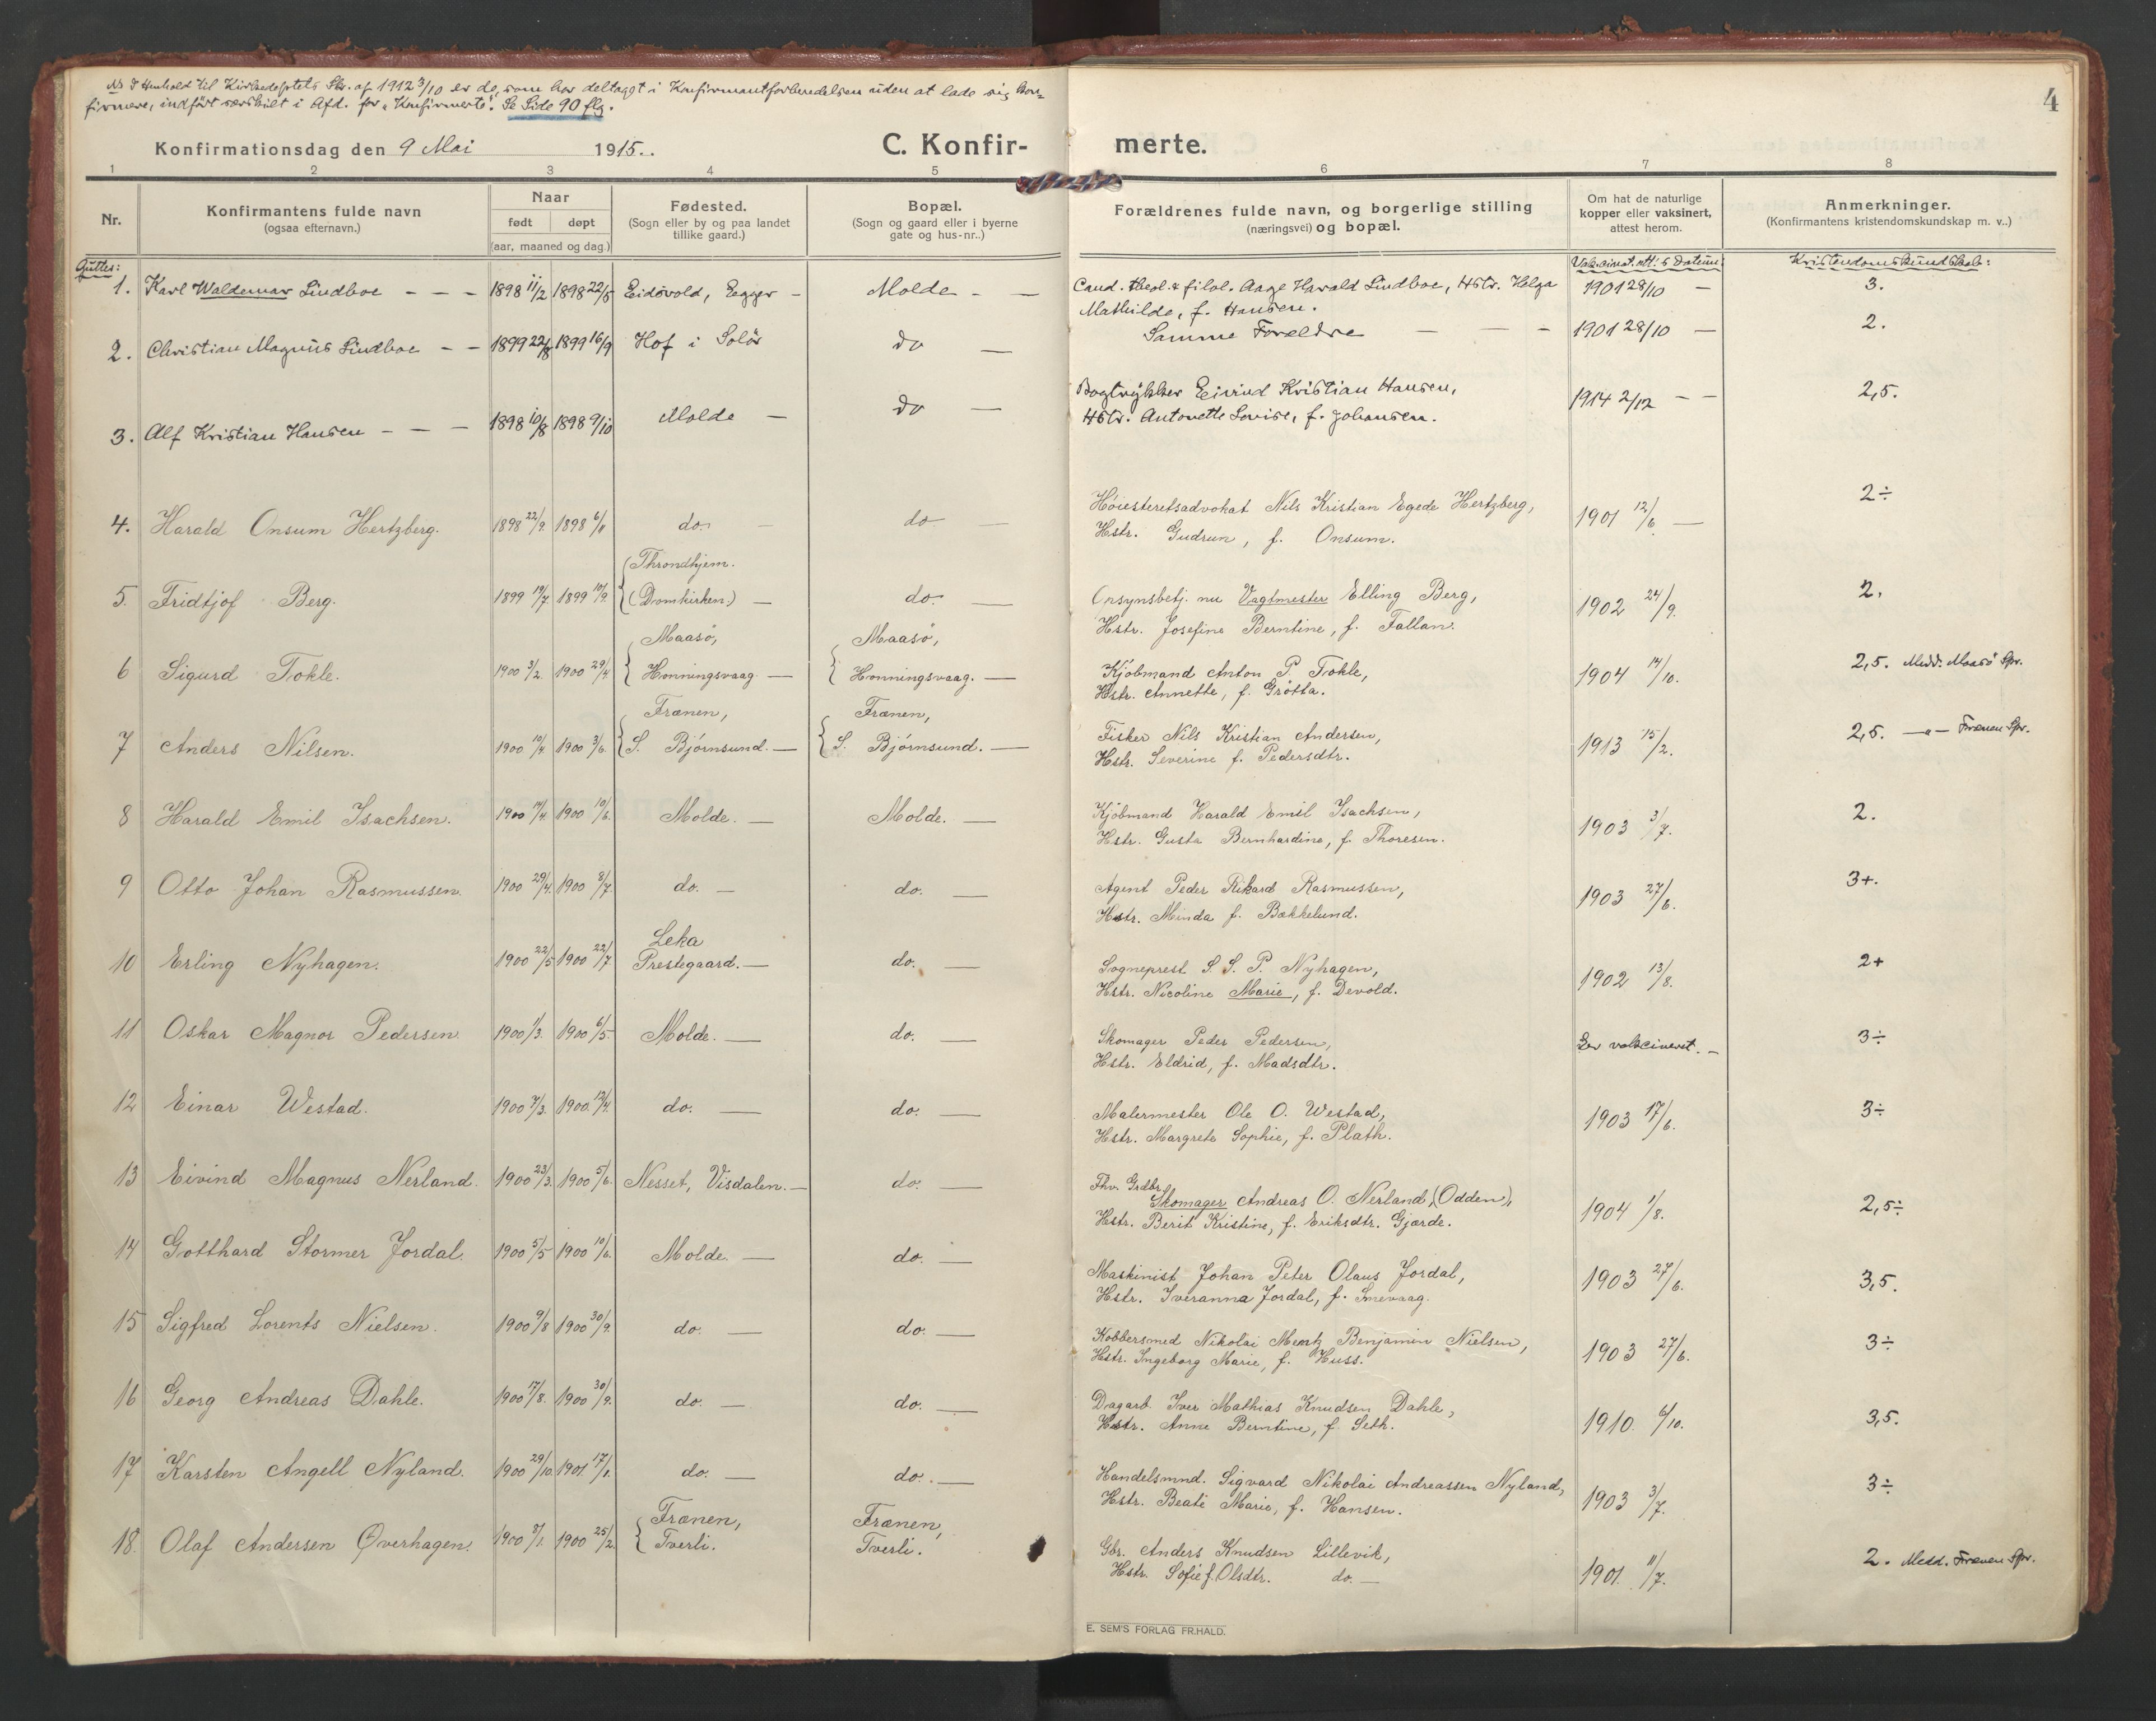 NB I Henhold til Kirkedeptets Skr. af 1912 3/10 er de, som har deltaget i Konfirmantforberedelsen uden at lade sig kon-
firmere, indført særskilt i Afd. for "Konfirmerte". Se Side 90 flg.
4
Konfirmationsdag den 9 Mai 1915. C. Konfir- merte.
1 2 3 4 5 6 7 8
Nr.
Konfirmantens fulde navn
(ogsaa efternavn.)
Naar
født døpt
(aar, maaned og dag.)
Fødested.
(Sogn eller by og paa landet
tillike gaard.)
Bopæl.
(Sogn og gaard eller i byerne
gate og hus-nr..)
Forældrenes fulde navn, og borgerlige stilling
(næringsvei) og bopæl.
Om hat de naturlige
kopper eller vaksinert,
attest herom.
Anmerkninger.
(Konfirmantens kristendomskundskap m. v..)
Gutter:
Vakcinat. att.s Datum:
Kristendomskundskab:
1. Karl Waldemar Lindboe - - - 1898 11/2 1898 22/5 Eidsvold, - Molde - - Cand. theol. & filol. Aage Harald Lindboe, Hstr. Helga 1901 28/10 - 3.
Mathilde, f. Hansen.
2. Christian Magnus Lindboe - - 1899 22/8 1899 16/9 Hof i Solør do - Samme Forældre - - - 1901 28/10 - 2.
3. Alf Kristian Hansen - - - 1898 10/8 1898 9/10 Molde - do - Bogtrykker Eivind Kristian Hansen, 1914 2/12 - - 2,5.
Hstr. Antonette Lovise, f. Johansen.
4. Harald Onsum Hertzberg. 1898 22/9. 1898 6/11 do. - do - Høiesteretsadvokat Nils Kristian Egede Hertzberg, 1901 12/6 - 2÷
Hstr. Gudrun, f. Onsum.
5. Fridtjof Berg. 1899 19/7 1899 10/9. Throndhjem. (Domkirken) - do. - Opsynsbetj. nu Vagtmester Elling Berg, 1902 24/9. 2.
Hstr. Josefine Berntine, f. Fallan.
6 Sigurd Tokle. 1900 3/2. 1900 29/4 Maasø, Honningsvaag - Maasø, Honningsvaag. - Kjøbmand Anton P. Tokle, 1904 14/10. 2,5. Medd. Maasø Spr.
Hstr. Annette, f. Grøtta.
7 Anders Nilsen. 1900 10/4 1900 3/6. Frænen, S. Bjørnsund. - Frænen, S. Bjørnsund. - Fisker Nils Kristian Andersen, 1913 15/2. 2,5. -"- Frænen Spr.
Hstr. Severine f. Pedersdtr.
8 Harald Emil Isachsen. 1900 14/4. 1900 10/6. Molde. - Molde. - Kjøbmand Harald Emil Isachsen, 1903 3/7. 2.
Hstr. Gusta Bernhardine, f. Thoresen.
9 Otto Johan Rasmussen. 1900 29/4. 1900 8/7 do. - do. - Agent Peder Rikard Rasmussen, 1903 27/6. 3+.
Hstr. Minda f. Bækkelund.
10 Erling Nyhagen. 1900 22/5 1900 22/7 Leka Prestegaard. - do. - Sogneprest S. S. P. Nyhagen, 1902 13/8. 2+
Hstr. Nicoline Marie, f. Devold.
11 Oskar Magnor Pedersen 1900 1/3. 1900 6/5. Molde. - do. - Skomager Peder Pedersen, Er vakcineret. - 3÷
Hstr. Eldrid, f. Madsdtr.
12 Einar Westad. 1900 7/3. 1900. 12/4. do. - do. - Malermester Ole O. Westad, 1903 17/6. 3÷
Hstr. Margrete Sophie, f. Plath.
13 Eivind Magnus Nerland. 1900 23/3. 1900 5/6. Nesset, Visdalen. - do. - Fhv. Grdbr. Skomager Andreas O. Nerland (Odden), 1904 1/8. 2,5÷
Hstr. Berit Kristine, f. Eriksdtr. Gjørde.
14 Gotthard Stormer Jordal 1900 5/5 1900 10/6. Molde - do. - Maskinist Johan Peter Olaus Jordal, 1903 27/6. 3,5.
Hstr. Iveranna Jordal, f. Smevaag.
15 Sigfred Lorents Nielsen. 1900 9/8 1900 30/9. do. - do. - Kobbersmed Nikolai Mentz Benjamin Nielsen, 1903 27/6. 3÷
Hstr. Ingeborg Marie, f. Huss.
16 Georg Andreas Dahle. 1900 17/8. 1900 30/9. do. - do. - Dagarb. Iver Mathias Knudsen Dahle, 1910. 6/10. 3,5.
Hstr. Anne Berntine, f. Seth.
17 Karsten Angell Nyland. 1900 29/10. 1901. 17/1. do. - do. - Handelsmnd. Sigvard Nikolai Andreassen Nyland, 1903 3/7. 3÷
Hstr. Beate Marie, f. Hansen.
18. Olaf Andersen Øverhagen. 1900 8/1. 1900 25/2 Frænen, Tverli. Frænen, Tverli. Gbr. Anders Knudsen Lillevik, 1901. 11/7. 2. Medd. Frænen Spr.
Hstr. Sofie f. Olsdtr. do. -
E. SEM'S FORLAG FR.HALD.